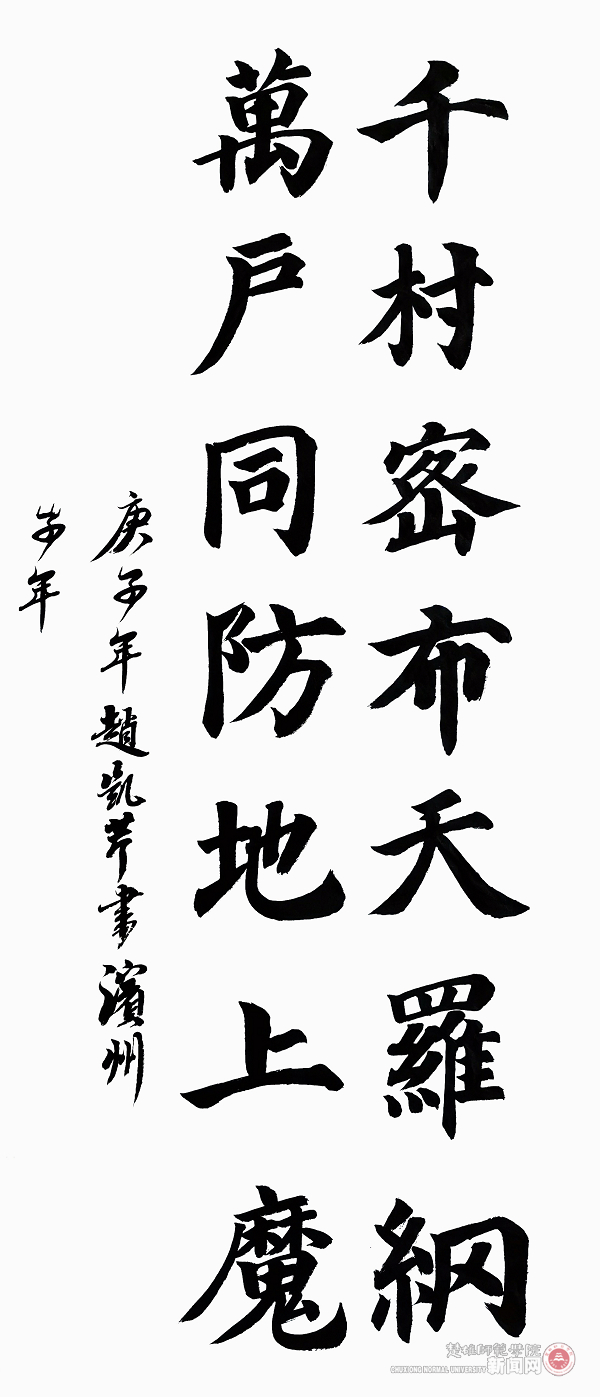 千村密布天羅網
萬户同防地上魔
庚子年趙凱芹書濱州
年
楚雄師範學院
CHUXIONG NORMAL UNIVERSITY 新闻网